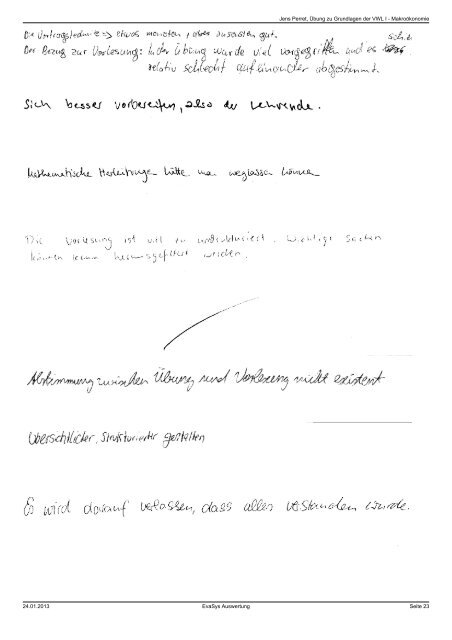 Jens Perret, Übung zu Grundlagen der VWL I - Makroökonomie
Die Vortragstechnik => etwas monoton, aber ansonsten gut.
Der Bezug zur Vorlesung: In der Übung wurde viel vorgegriffen und es
relativ schlecht aufeinander abgestimmt.
Sich besser vorbereiten, also der Lehrende.
Mathematische Herleitungen hätte man weglassen können
Die Vorlesung ist viel zu unstrukturiert. Wichtige Sachen
können kaum herausgefiltert werden.
Abstimmung zwischen Übung und Vorlesung nicht existent
Übersichtlicher, strukturierter gestalten
Es wird darauf verlassen, dass alles verstanden wurde.
24.01.2013
EvaSys Auswertung
Seite 23